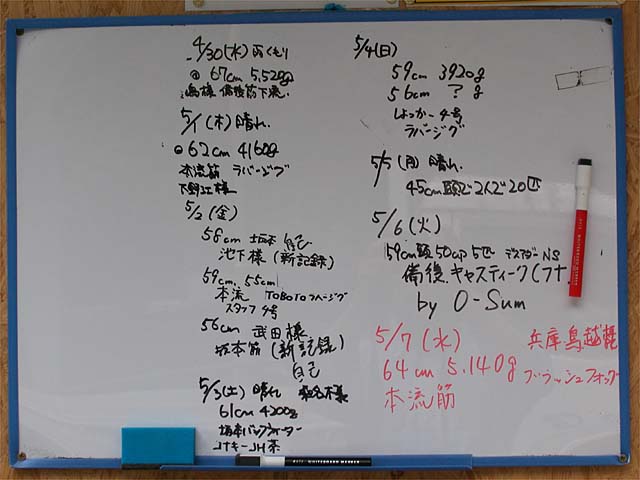 4/30(水) 雨くもり
◎ 67cm 5,520g
備後筋下流.
5/1(木) 晴れ.
◎62cm 4160g
本流筋 ラバージグ
下野江様
5/2(金)
58cm 坂本 自己
池下様(新記録)
59cm. 55cm
本流
スタッフ4号
56cm 武田様
坂本筋(新記録)
自己
5/3(土) 晴れ 様
61cm 4200g
坂本バックウォーター
5/4(日)
59cm 3920g
56cm ? g
4号
ラバージグ
5/5(月) 晴れ.
45cm頭で2人で20匹
5/6(火)
59cm頭50up 5匹 NS
備後.キャスティーク(フナ.
by O-Sum
5/7(水) 兵庫 鳥越様
64cm 5.140g ブラッシュフォッグ
本流筋